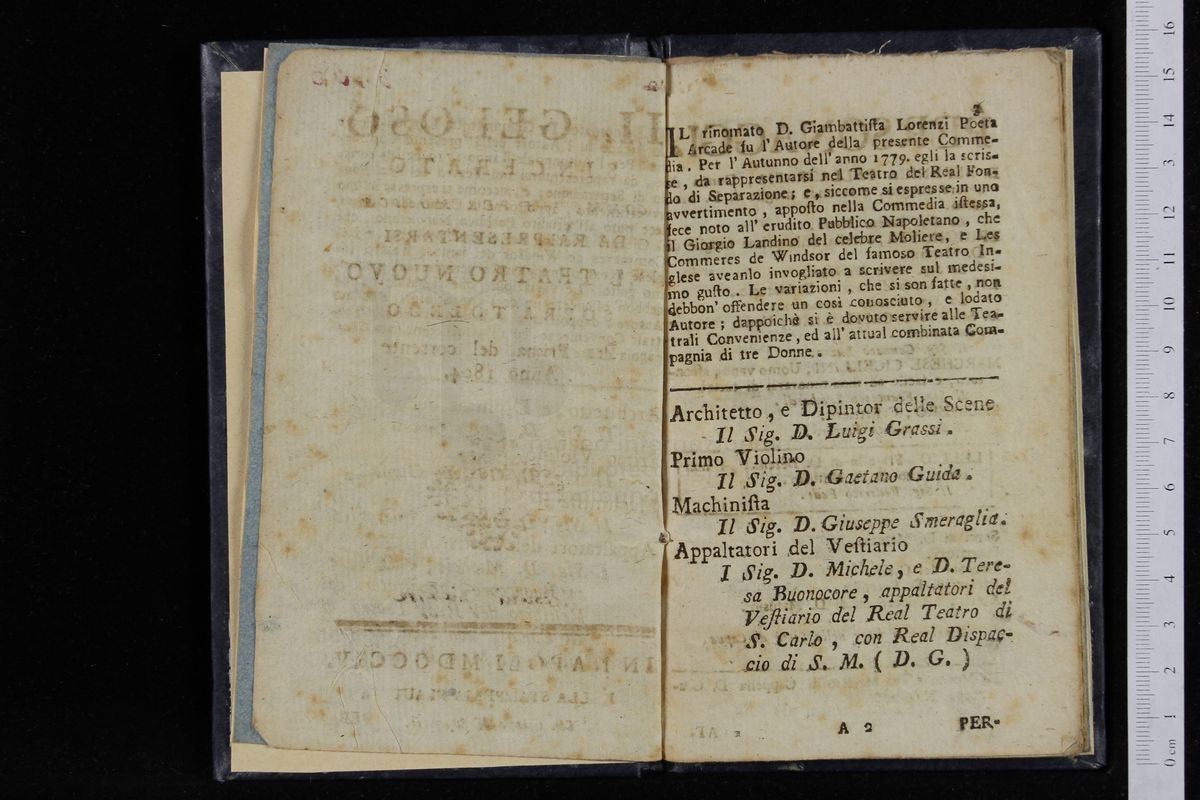 3
IL rinomato D. Giambattista Lorenzi Poeta
Arcade fu l'Autore della presente Comme-
dia. Per l'Autunno dell'anno 1779. egli la scris-
se, da rappresentarsi nel Teatro del Real Fon-
do di Separazione; e, siccome si espresse in uno
avvertimento, apposto nella Commedia istessa,
fece noto all'erudito Pubblico Napoletano, che
il Giorgio Landino del celebre Moliere, e Les
Commeres de Windsor del famoso Teatro In-
glese aveanlo invogliato a scrivere sul medesi-
mo gusto. Le variazioni, che si son fatte, non
debbon' offendere un così conosciuto, e lodato
Autore; dappoichè si è dovuto servire alle Tea-
trali Convenienze, ed all'attual combinata Com-
pagnia di tre Donne.
Architetto, e Dipintor delle Scene
Il Sig. D. Luigi Grassi.
Primo Violino
Il Sig. D. Gaetano Guida.
Machinista
Il Sig. D. Giuseppe Smeraglia.
Appaltatori del Vestiario
I Sig. D. Michele, e D. Tere-
sa Buonocore, appaltatori del
Vestiario del Real Teatro di
S. Carlo, con Real Dispac-
cio di S. M. ( D. G. )
A 2
PER-
0 cm 1 2 3 4 5 6 7 8 9 10 11 12 13 14 15 16